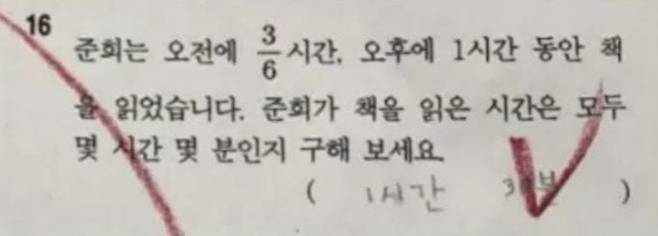 16
준회는 오전에 3/6시간, 오후에 1시간 동안 책
을 읽었습니다. 준회가 책을 읽은 시간은 모두
몇 시간 몇 분인지 구해 보세요.
( 1시간 분 )